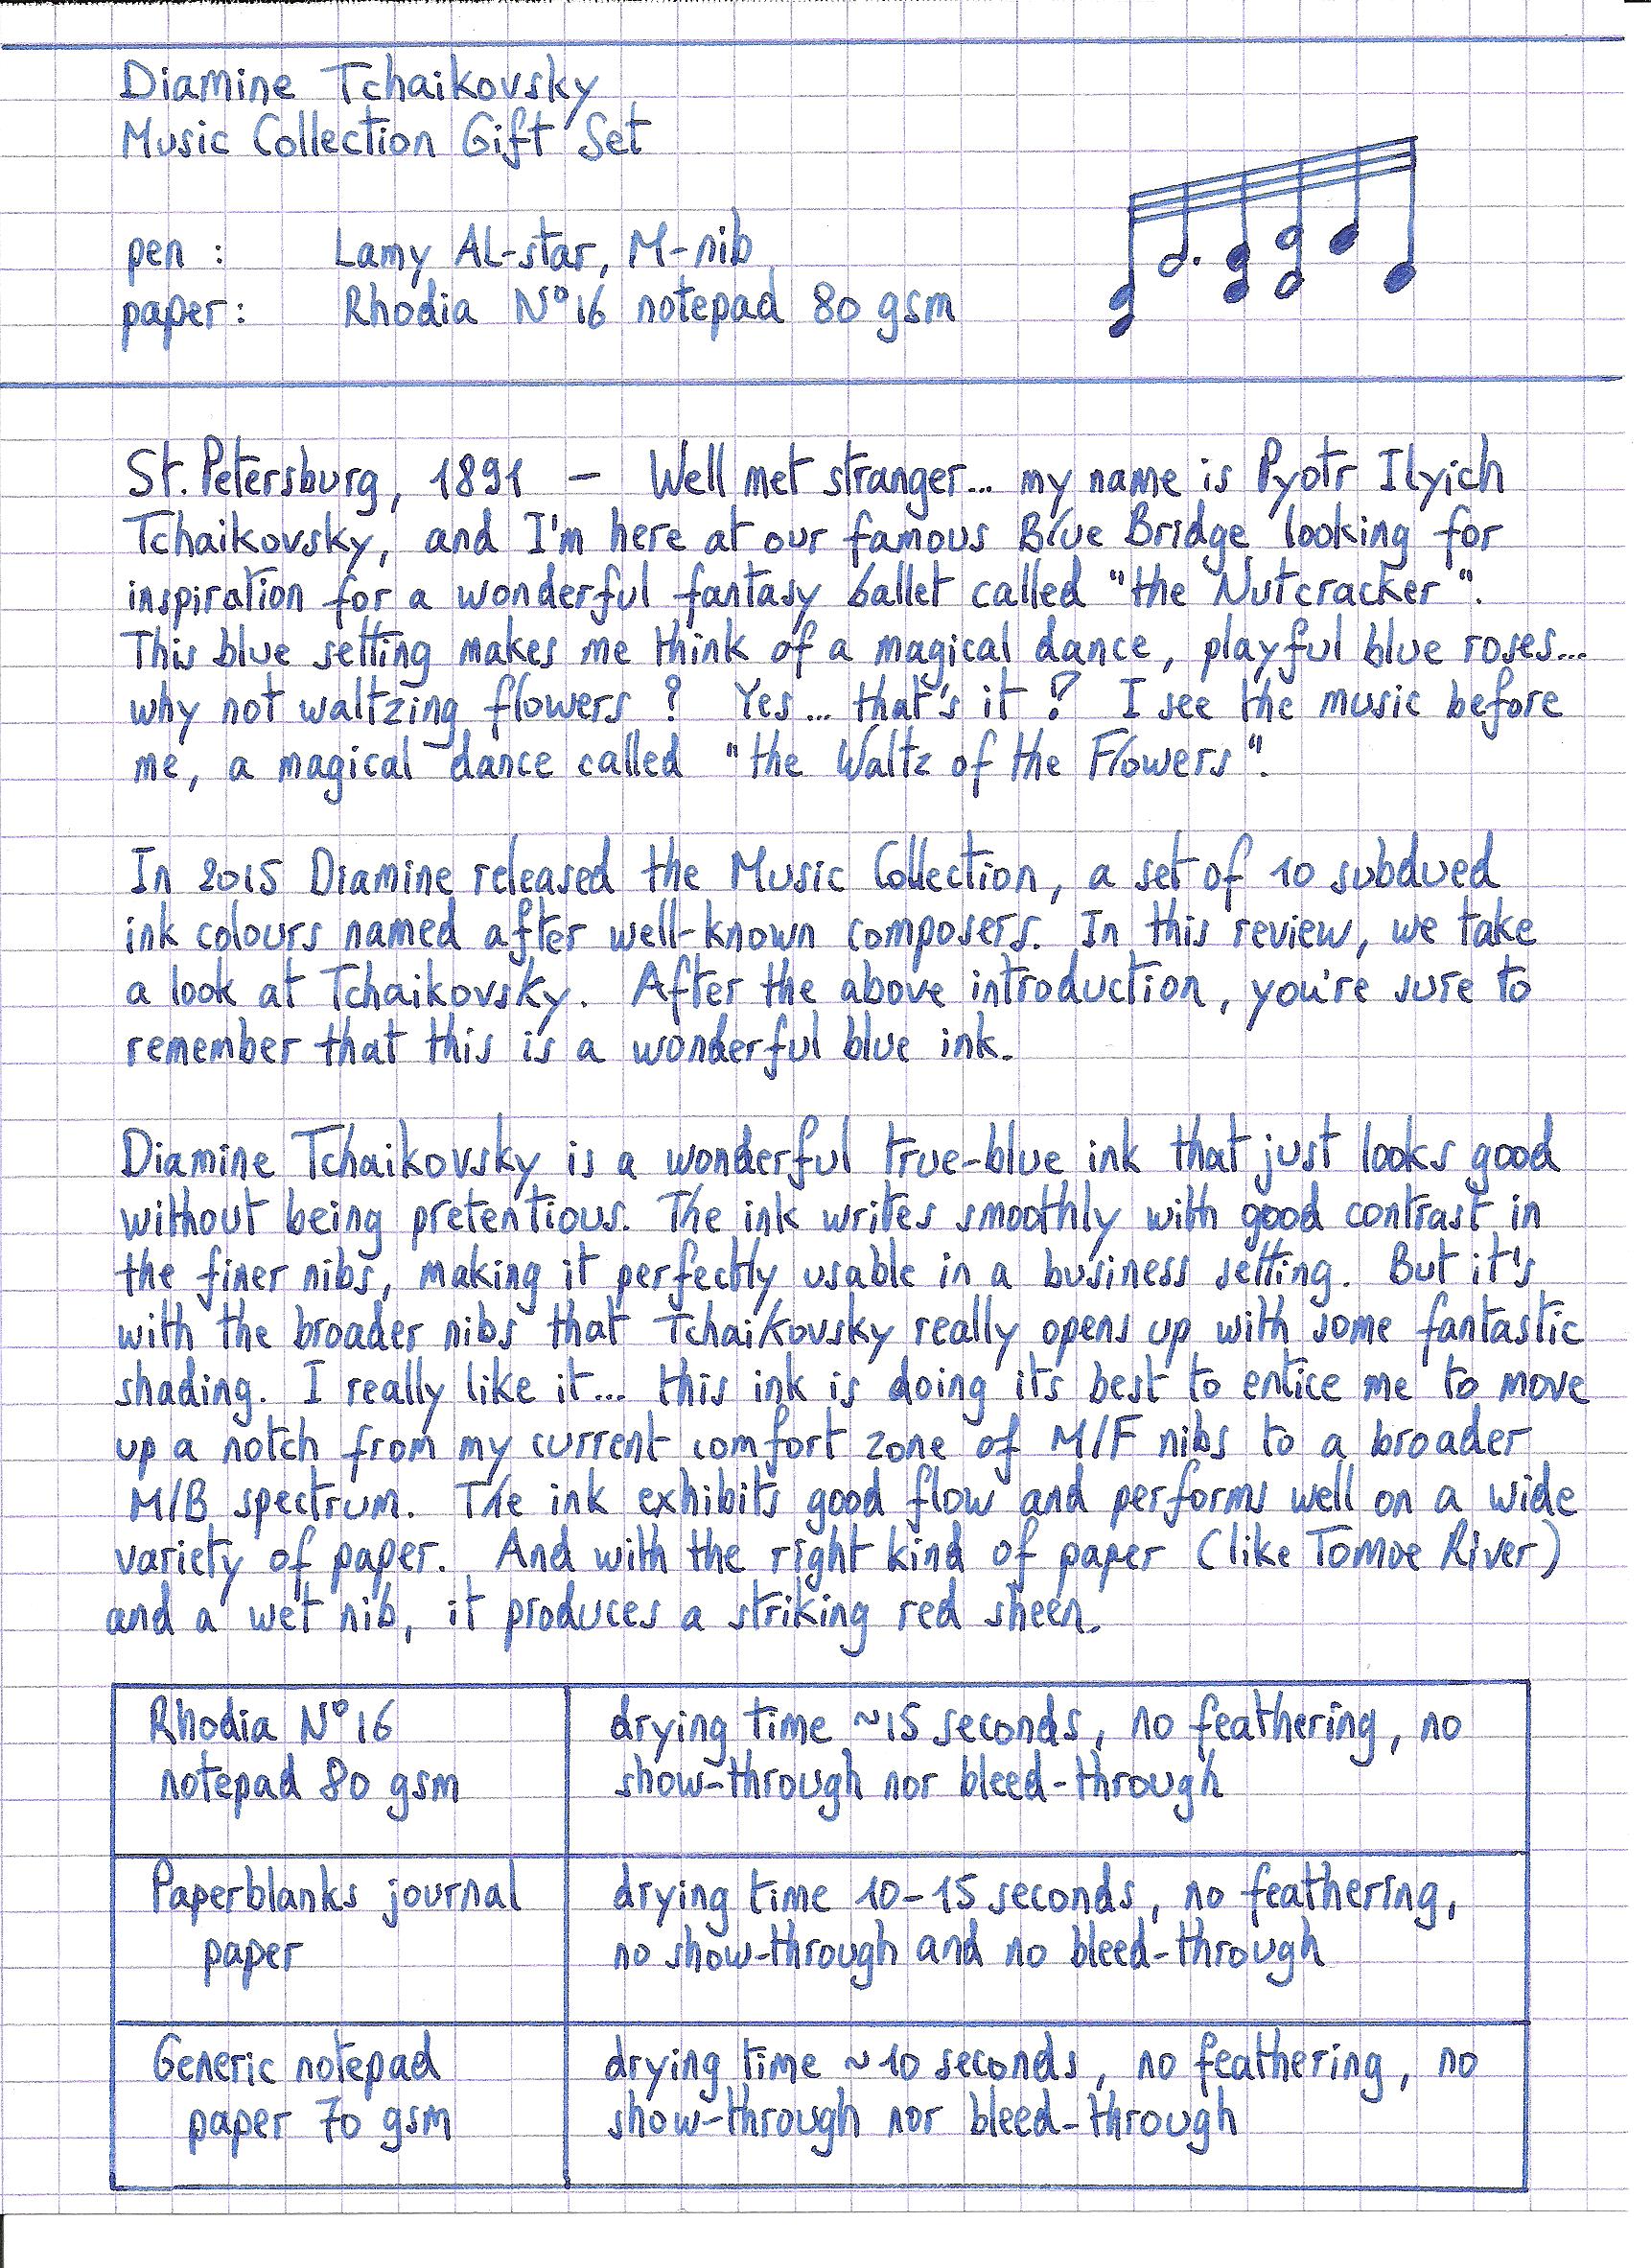 Diamine Tchaikovsky
Music Collection Gift Set
pen : Lamy AL-star, M-nib
paper: Rhodia N°16 notepad 80 gsm
St. Petersburg, 1891 – Well met stranger... my name is Pyotr Ilyich
Tchaikovsky, and I'm here at our famous Blue Bridge looking for
inspiration for a wonderful fantasy ballet called "the Nutcracker".
This blue setting makes me think of a magical dance, playful blue roses...
why not waltzing flowers ? Yes... that's it ? I see the music before
me, a magical dance called "the Waltz of the Flowers".
In 2015 Diamine released the Music Collection, a set of 10 subdued
ink colours named after well-known composers. In this review, we take
a look at Tchaikovsky. After the above introduction, you're sure to
remember that this is a wonderful blue ink.
Diamine Tchaikovsky is a wonderful true-blue ink that just looks good
without being pretentious. The ink writes smoothly with good contrast in
the finer nibs, making it perfectly usable in a business setting. But it's
with the broader nibs that Tchaikovsky really opens up with some fantastic
shading. I really like it... this ink is doing its best to entice me to move
up a notch from my current comfort zone of M/F nibs to a broader
M/B spectrum. The ink exhibits good flow and performs well on a wide
variety of paper. And with the right kind of paper (like Tomoe River)
and a wet nib, it produces a striking red sheen.
Rhodia N°16 drying time ~15 seconds, no feathering, no
notepad 80 gsm show-through nor bleed-through
Paperblanks journal drying time 10-15 seconds, no feathering,
paper no show-through and no bleed-through
Generic notepad drying time ~10 seconds, no feathering, no
paper 70 gsm show-through nor bleed-through